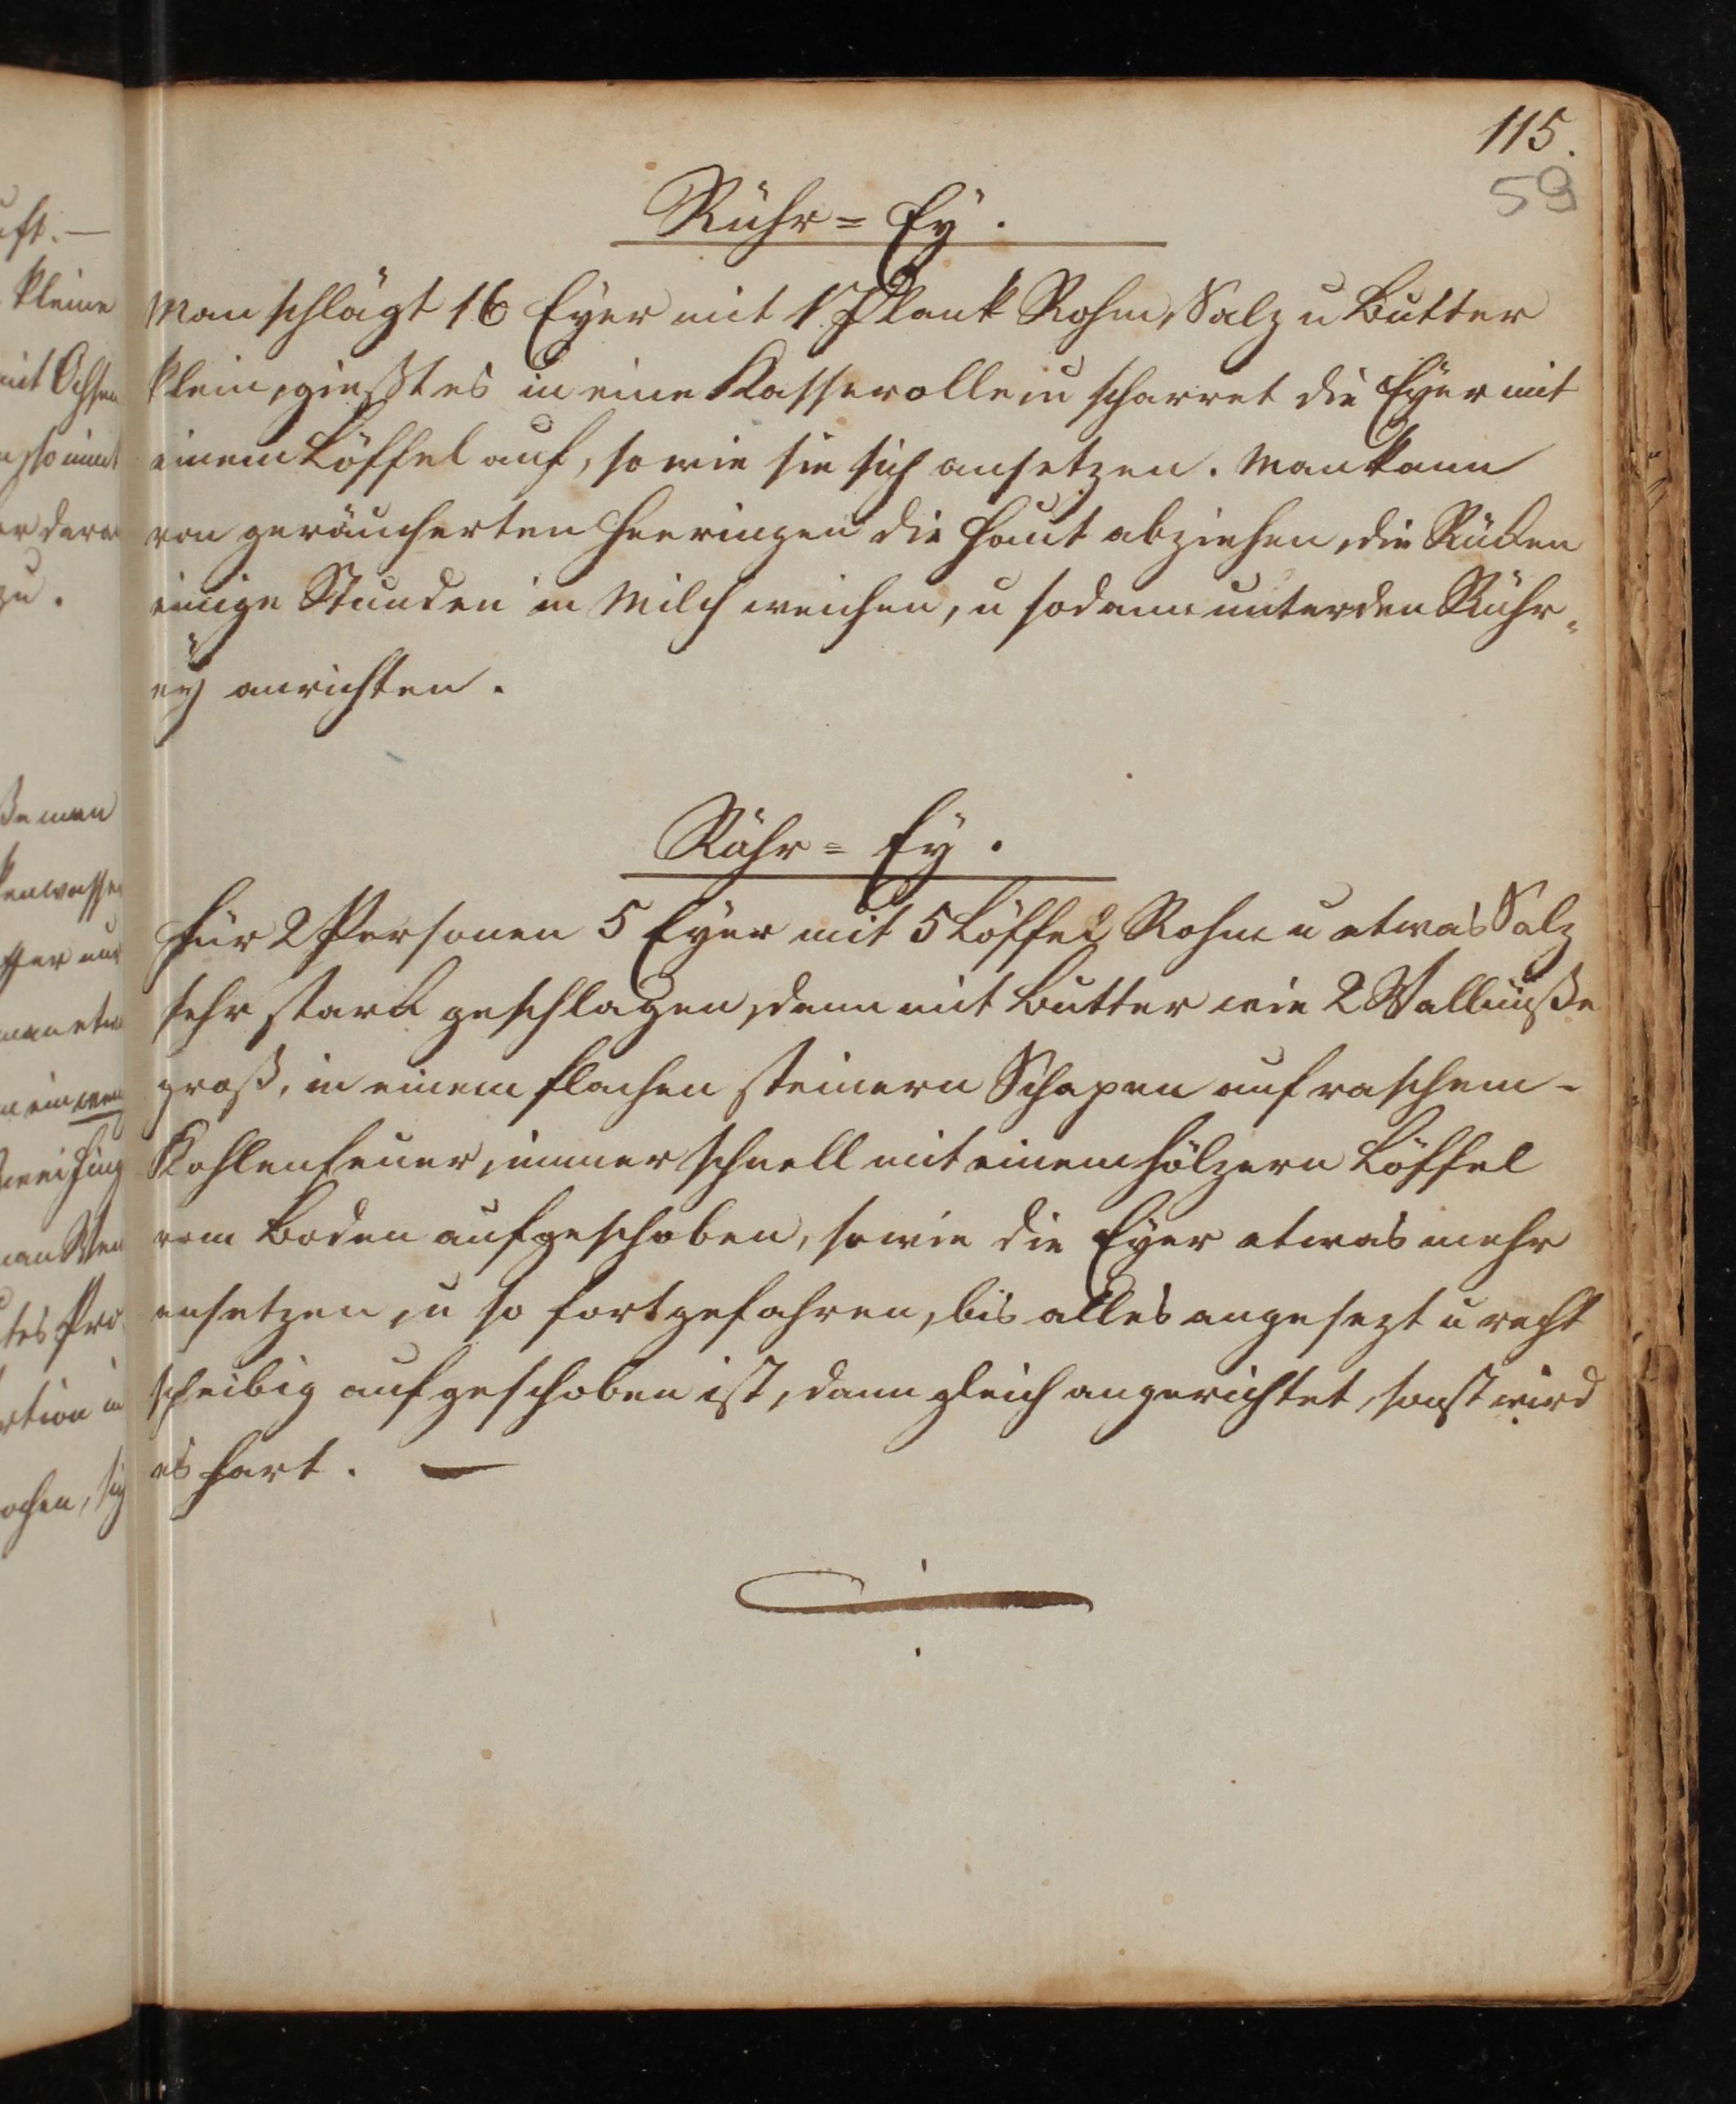 115.
59
Rühr = Ey.
Man schlägt 16 Eyer mit 1 Plank Rohm, Salz u Butter
klein, gießt es in eine Kasserolle u scharret die Eyer mit
einem Löffel auf, so wie sie sich ansetzen. Man kann
von geräucherten Heeringen die Haut abziehen, die Rücken
einige Stunden in Milch weichen, u sodann unter den Rühr=
ey anrichten.
Rühr = Ey.
Für 2 Personen 5 Eyer mit 5 Löffel Rohm u etwas Salz
sehr stark geschlagen, denn mit Butter wie 2 Wallnüße
groß, in einem flachen steinern Schapen auf raschem
Kohlenfeuer, immer schnell mit einem hölzern Löffel
vom Boden aufgeschoben, sowie die Eyer etwas mehr
ansetzen, u so fortgefahren, bis alles angesezt u recht
scheibig aufgeschoben ist, dann gleich angerichtet, sonst wird
es hart. —